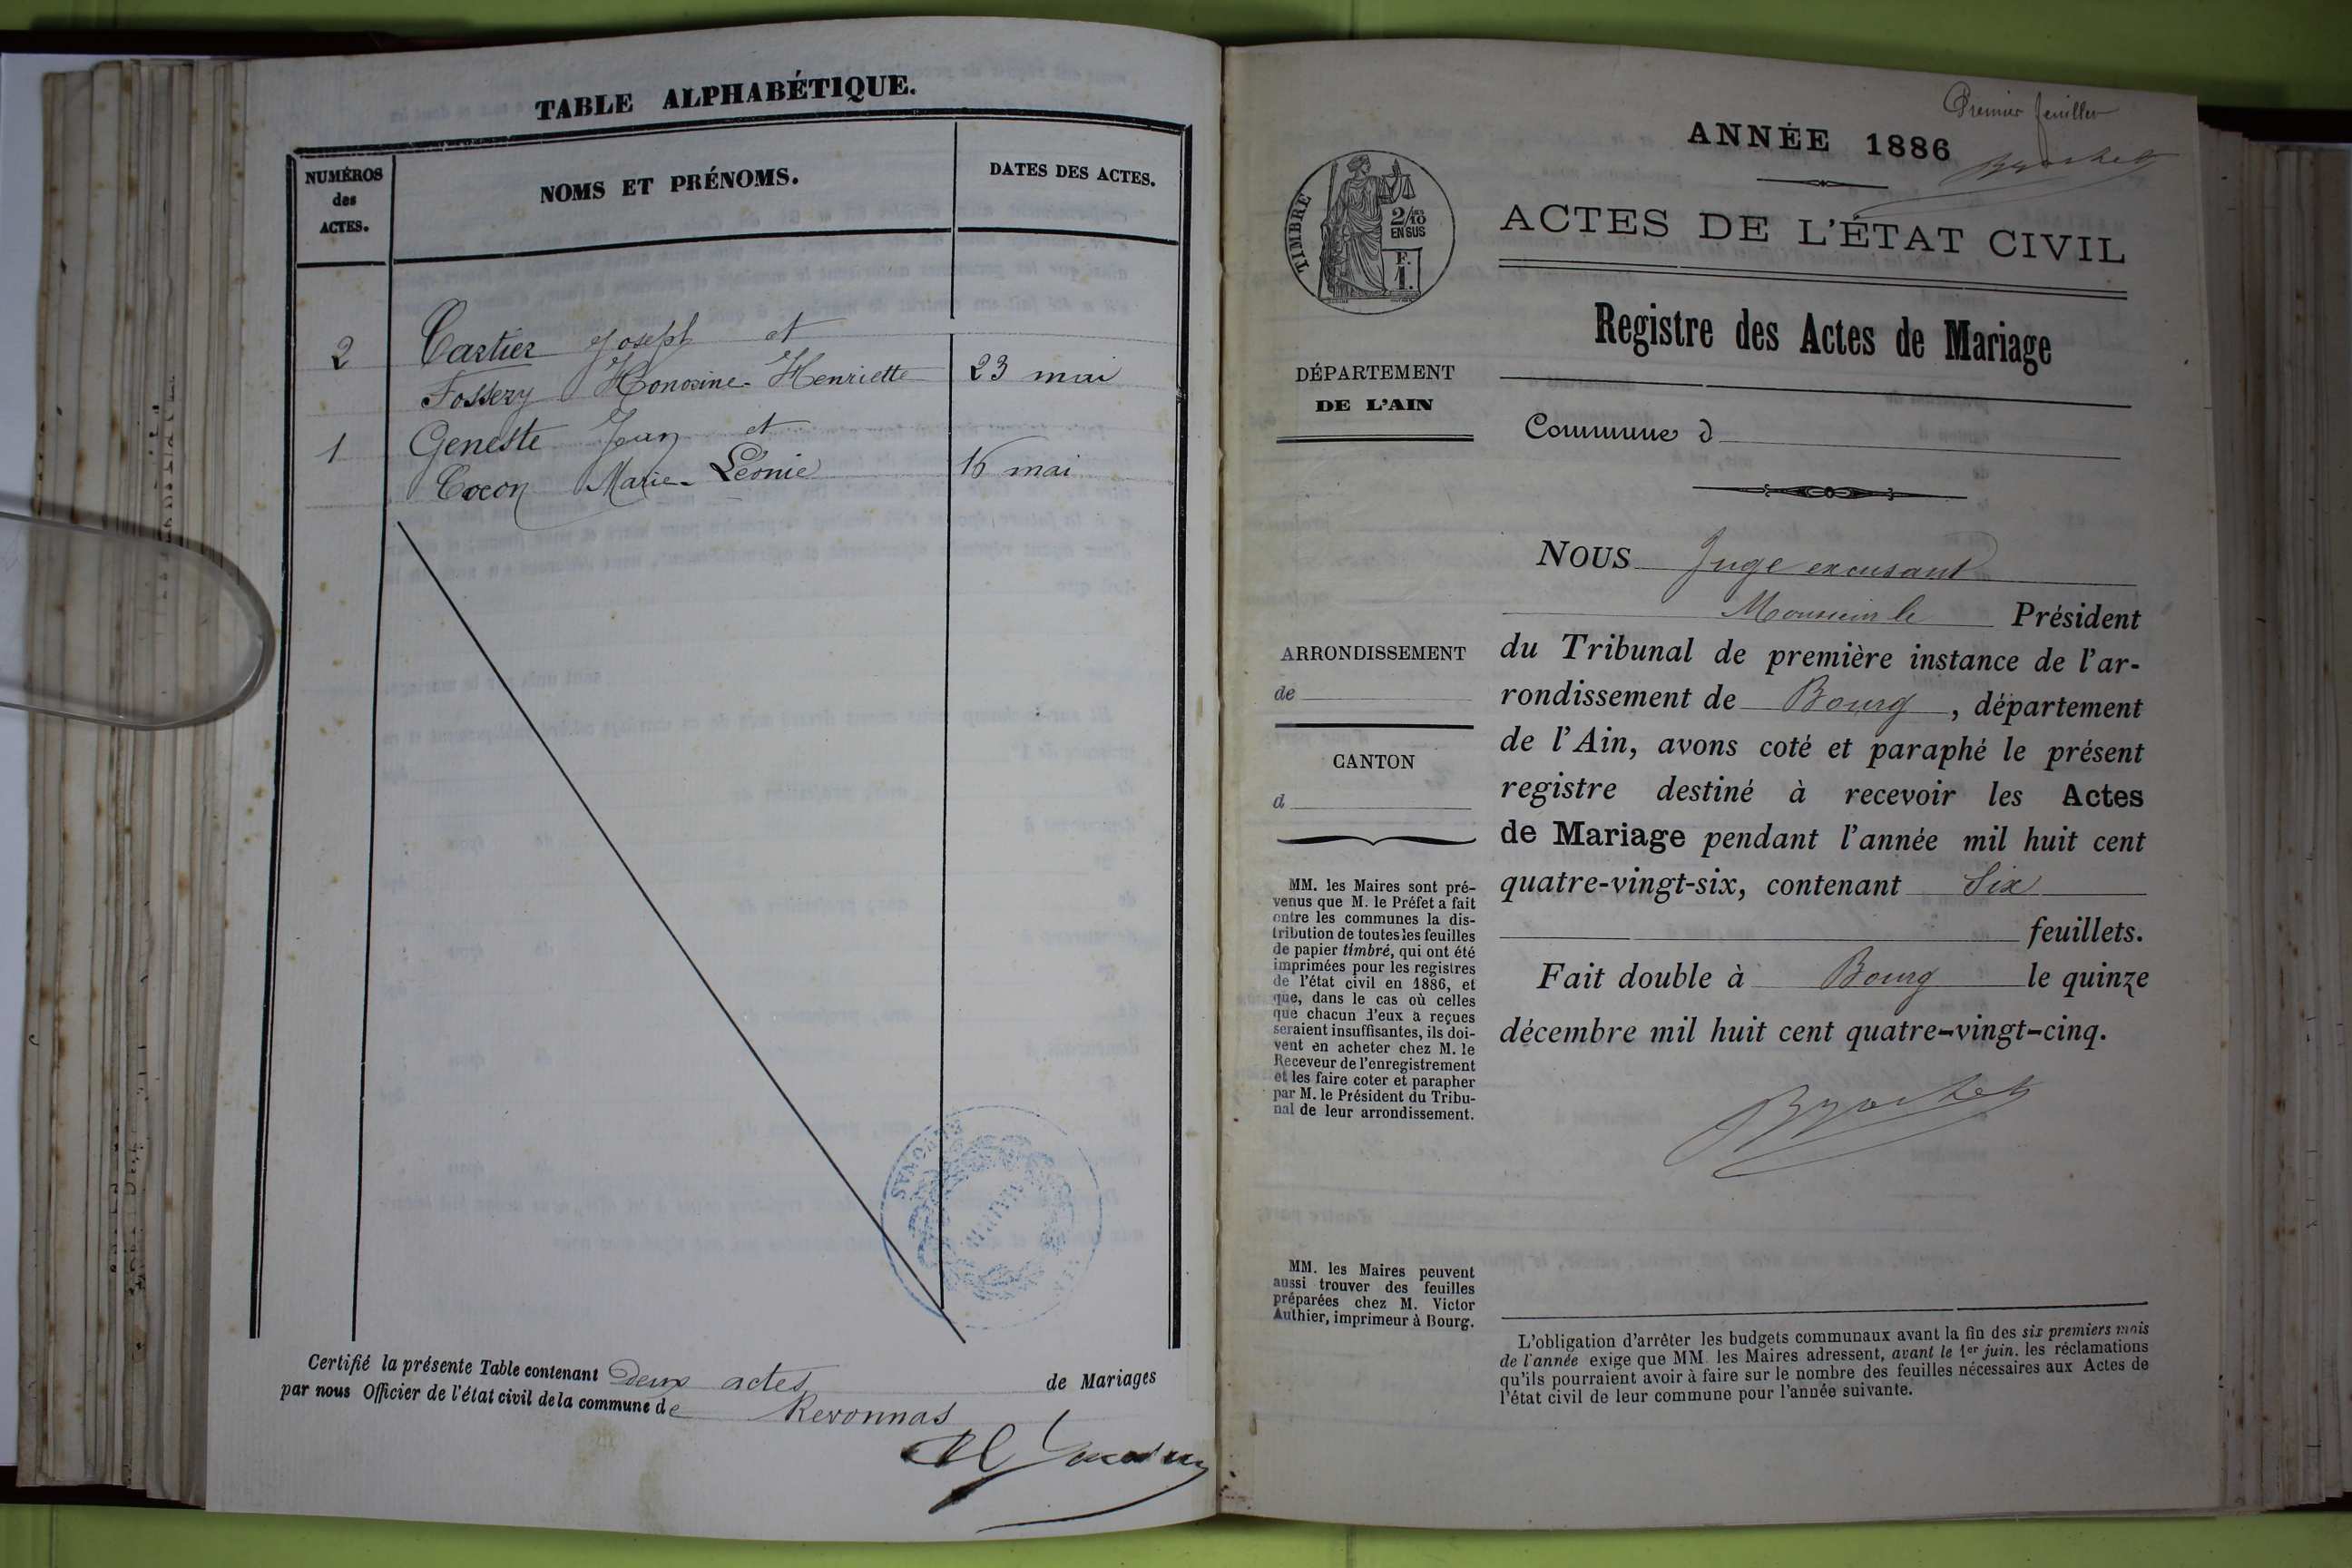 TABLE ALPHABÉTIQUE.
NUMÉROS
des
ACTES.
NOMS ET PRÉNOMS.
DATES DES ACTES.
2
Cartier Joseph et
Fossery Honorine-Henriette
23 mai
1
Geneste Jean et
Cocon Marie-Léonie
16 mai
REVONNAS
MAIRIE
AIN
Certifié la présente Table contenant Deux actes de Mariages
par nous Officier de l'état civil de la commune de Revonnas
Premier feuillet
ANNÉE 1886
TIMBRE
2/10
EN SUS
F.
1.
ACTES DE L'ÉTAT CIVIL
Registre des Actes de Mariage
DÉPARTEMENT
DE L'AIN
Commune d
NOUS Juge excusant
Monsieur le Président
du Tribunal de première instance de l'ar-
rondissement de Bourg, département
de l'Ain, avons coté et paraphé le présent
registre destiné à recevoir les Actes
de Mariage pendant l'année mil huit cent
quatre-vingt-six, contenant Six
feuillets.
Fait double à Bourg le quinze
décembre mil huit cent quatre-vingt-cinq.
ARRONDISSEMENT
de
CANTON
d
MM. les Maires sont pré-
venus que M. le Préfet a fait
entre les communes la dis-
tribution de toutes les feuilles
de papier timbré, qui ont été
imprimées pour les registres
de l'état civil en 1886, et
que, dans le cas où celles
que chacun d'eux a reçues
seraient insuffisantes, ils doi-
vent en acheter chez M. le
Receveur de l'enregistrement
et les faire coter et parapher
par M. le Président du Tribu-
nal de leur arrondissement.
MM. les Maires peuvent
aussi trouver des feuilles
préparées chez M. Victor
Authier, imprimeur à Bourg.
L'obligation d'arrêter les budgets communaux avant la fin des six premiers mois
de l'année exige que MM. les Maires adressent, avant le 1er juin. les réclamations
qu'ils pourraient avoir à faire sur le nombre des feuilles nécessaires aux Actes de
l'état civil de leur commune pour l'année suivante.